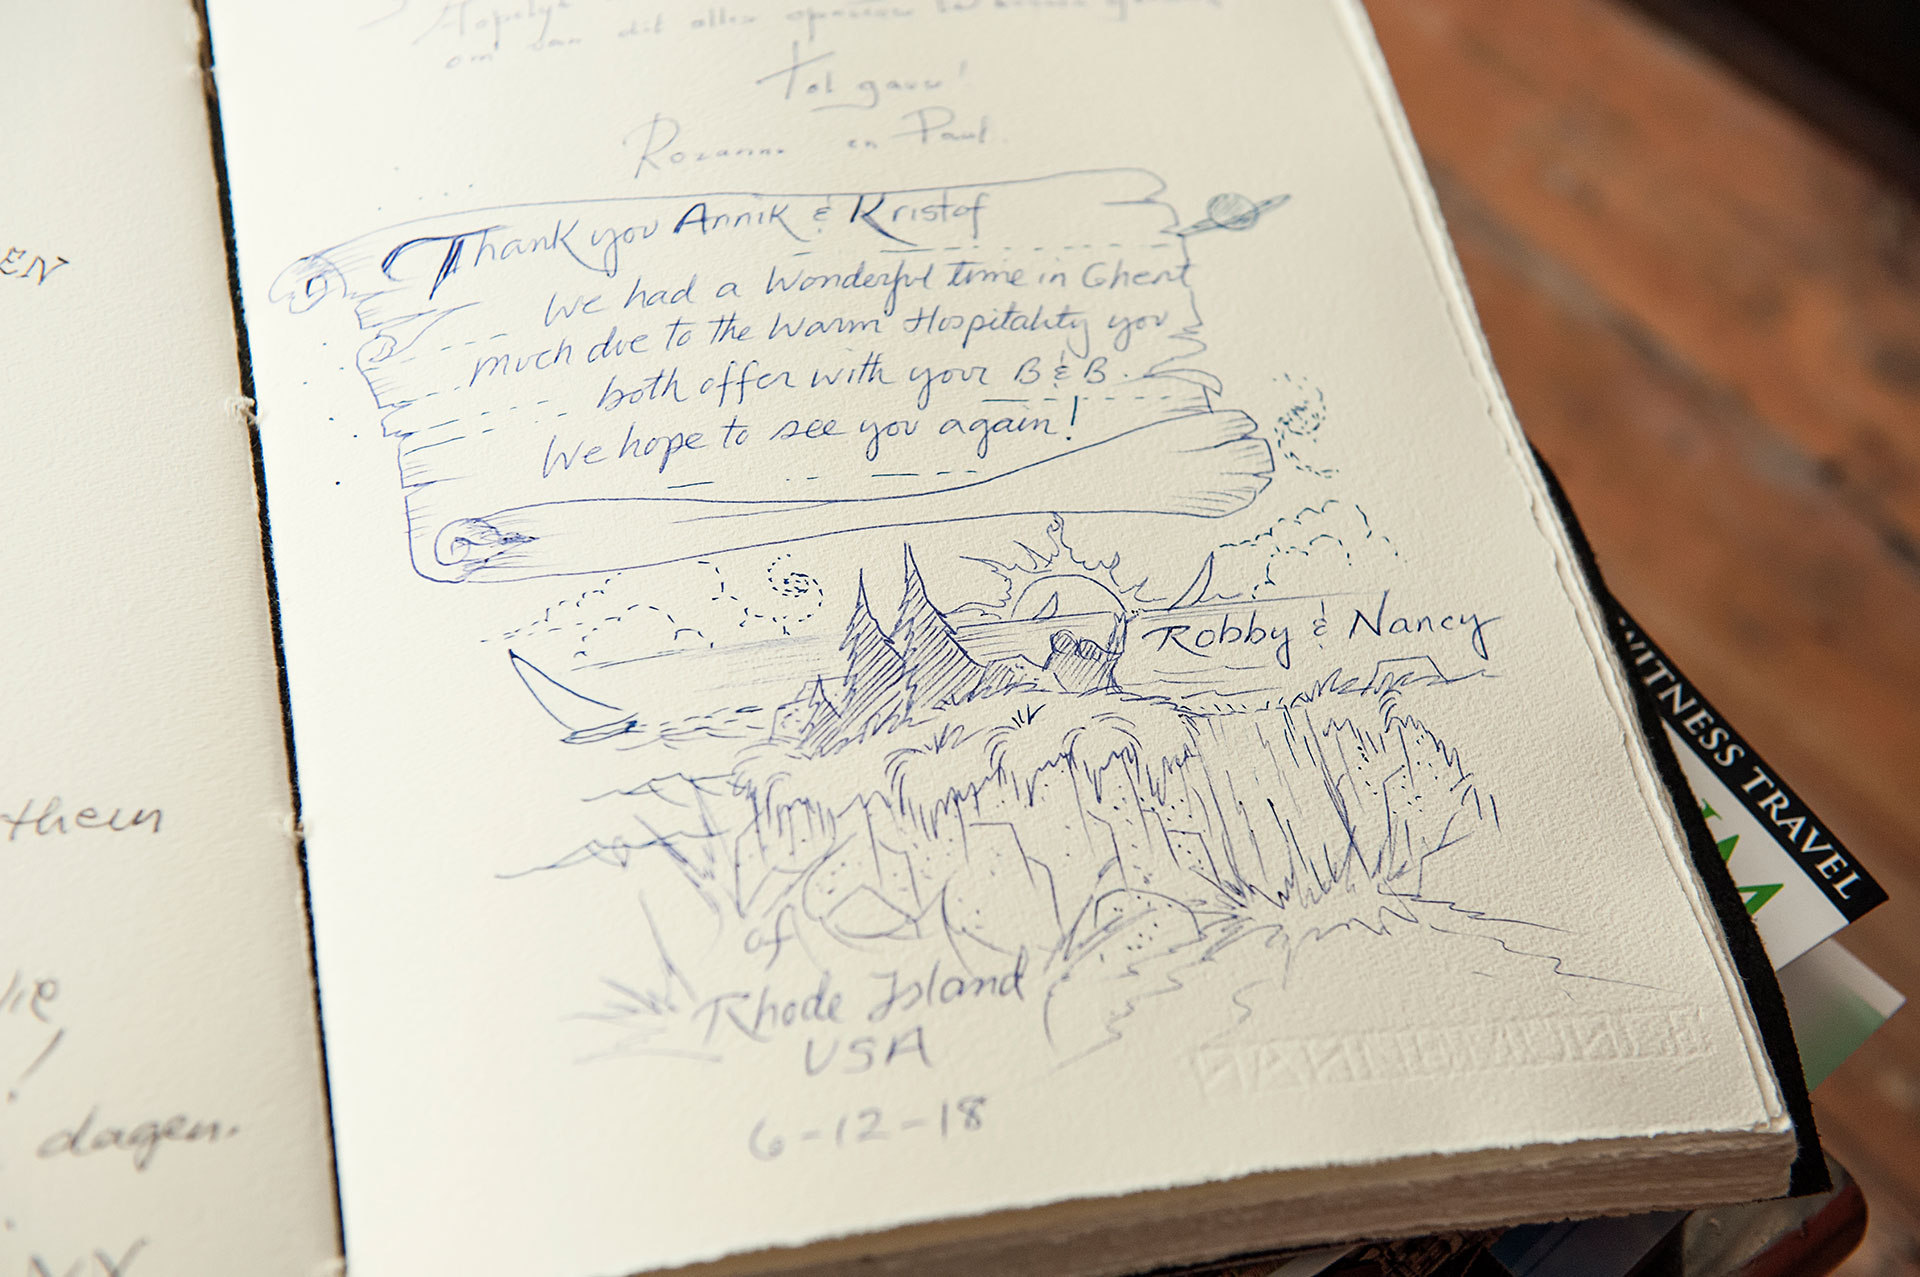 EN
them
dagen.
om van dit alles
Tot gauw!
Rozanne en Paul
Thank you Annik & Kristof
We had a Wonderful time in Ghent
much due to the Warm Hospitality you
both offer with your B & B.
We hope to see you again!
Robby & Nancy
of
Rhode Island
USA
6-12-18
WITNESS TRAVEL